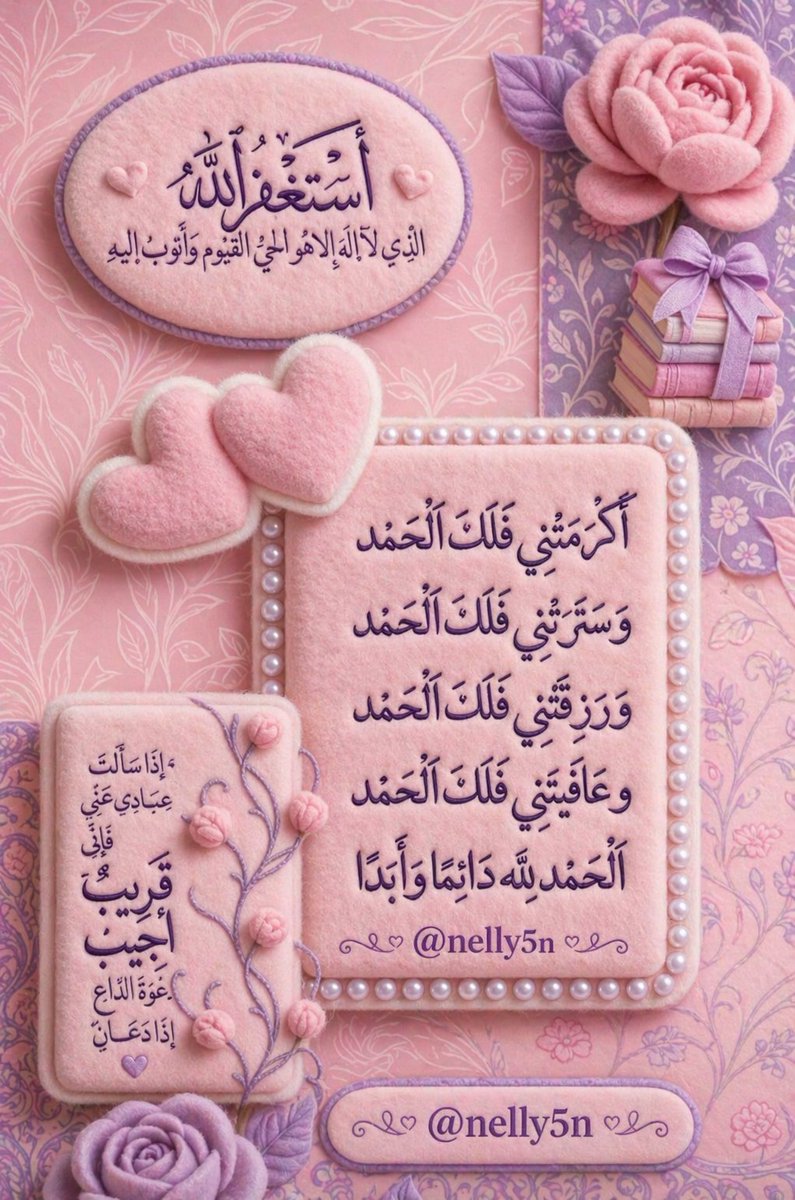 أَسْتَغْفِرُ ٱللَّهَ
الَّذِي لَا إِلَهَ إِلَّا هُوَ الحَيُّ القَيُّوم وَأَتُوبُ إِلَيهِ
أَكْرَمَتْنِي فَلَكَ اَلْحَمْد
وَسَتَرَتْنِي فَلَكَ اَلْحَمْد
وَرَزِقَتَنِي فَلَكَ اَلْحَمْد
وعَافَيتَنِي فَلَكَ اَلْحَمْد
اَلْحَمْد لِلَّه دَائِمًا وَأَبَدًا
@nelly5n
وَإِذَا سَأَلَتَ
عِبَادِي عَنِّي
فَإِنِّي
قَرِيبٌ
أُجِيبُ
دَعْوَةَ الدَّاعِ
إِذَا دَعَانِ
@nelly5n